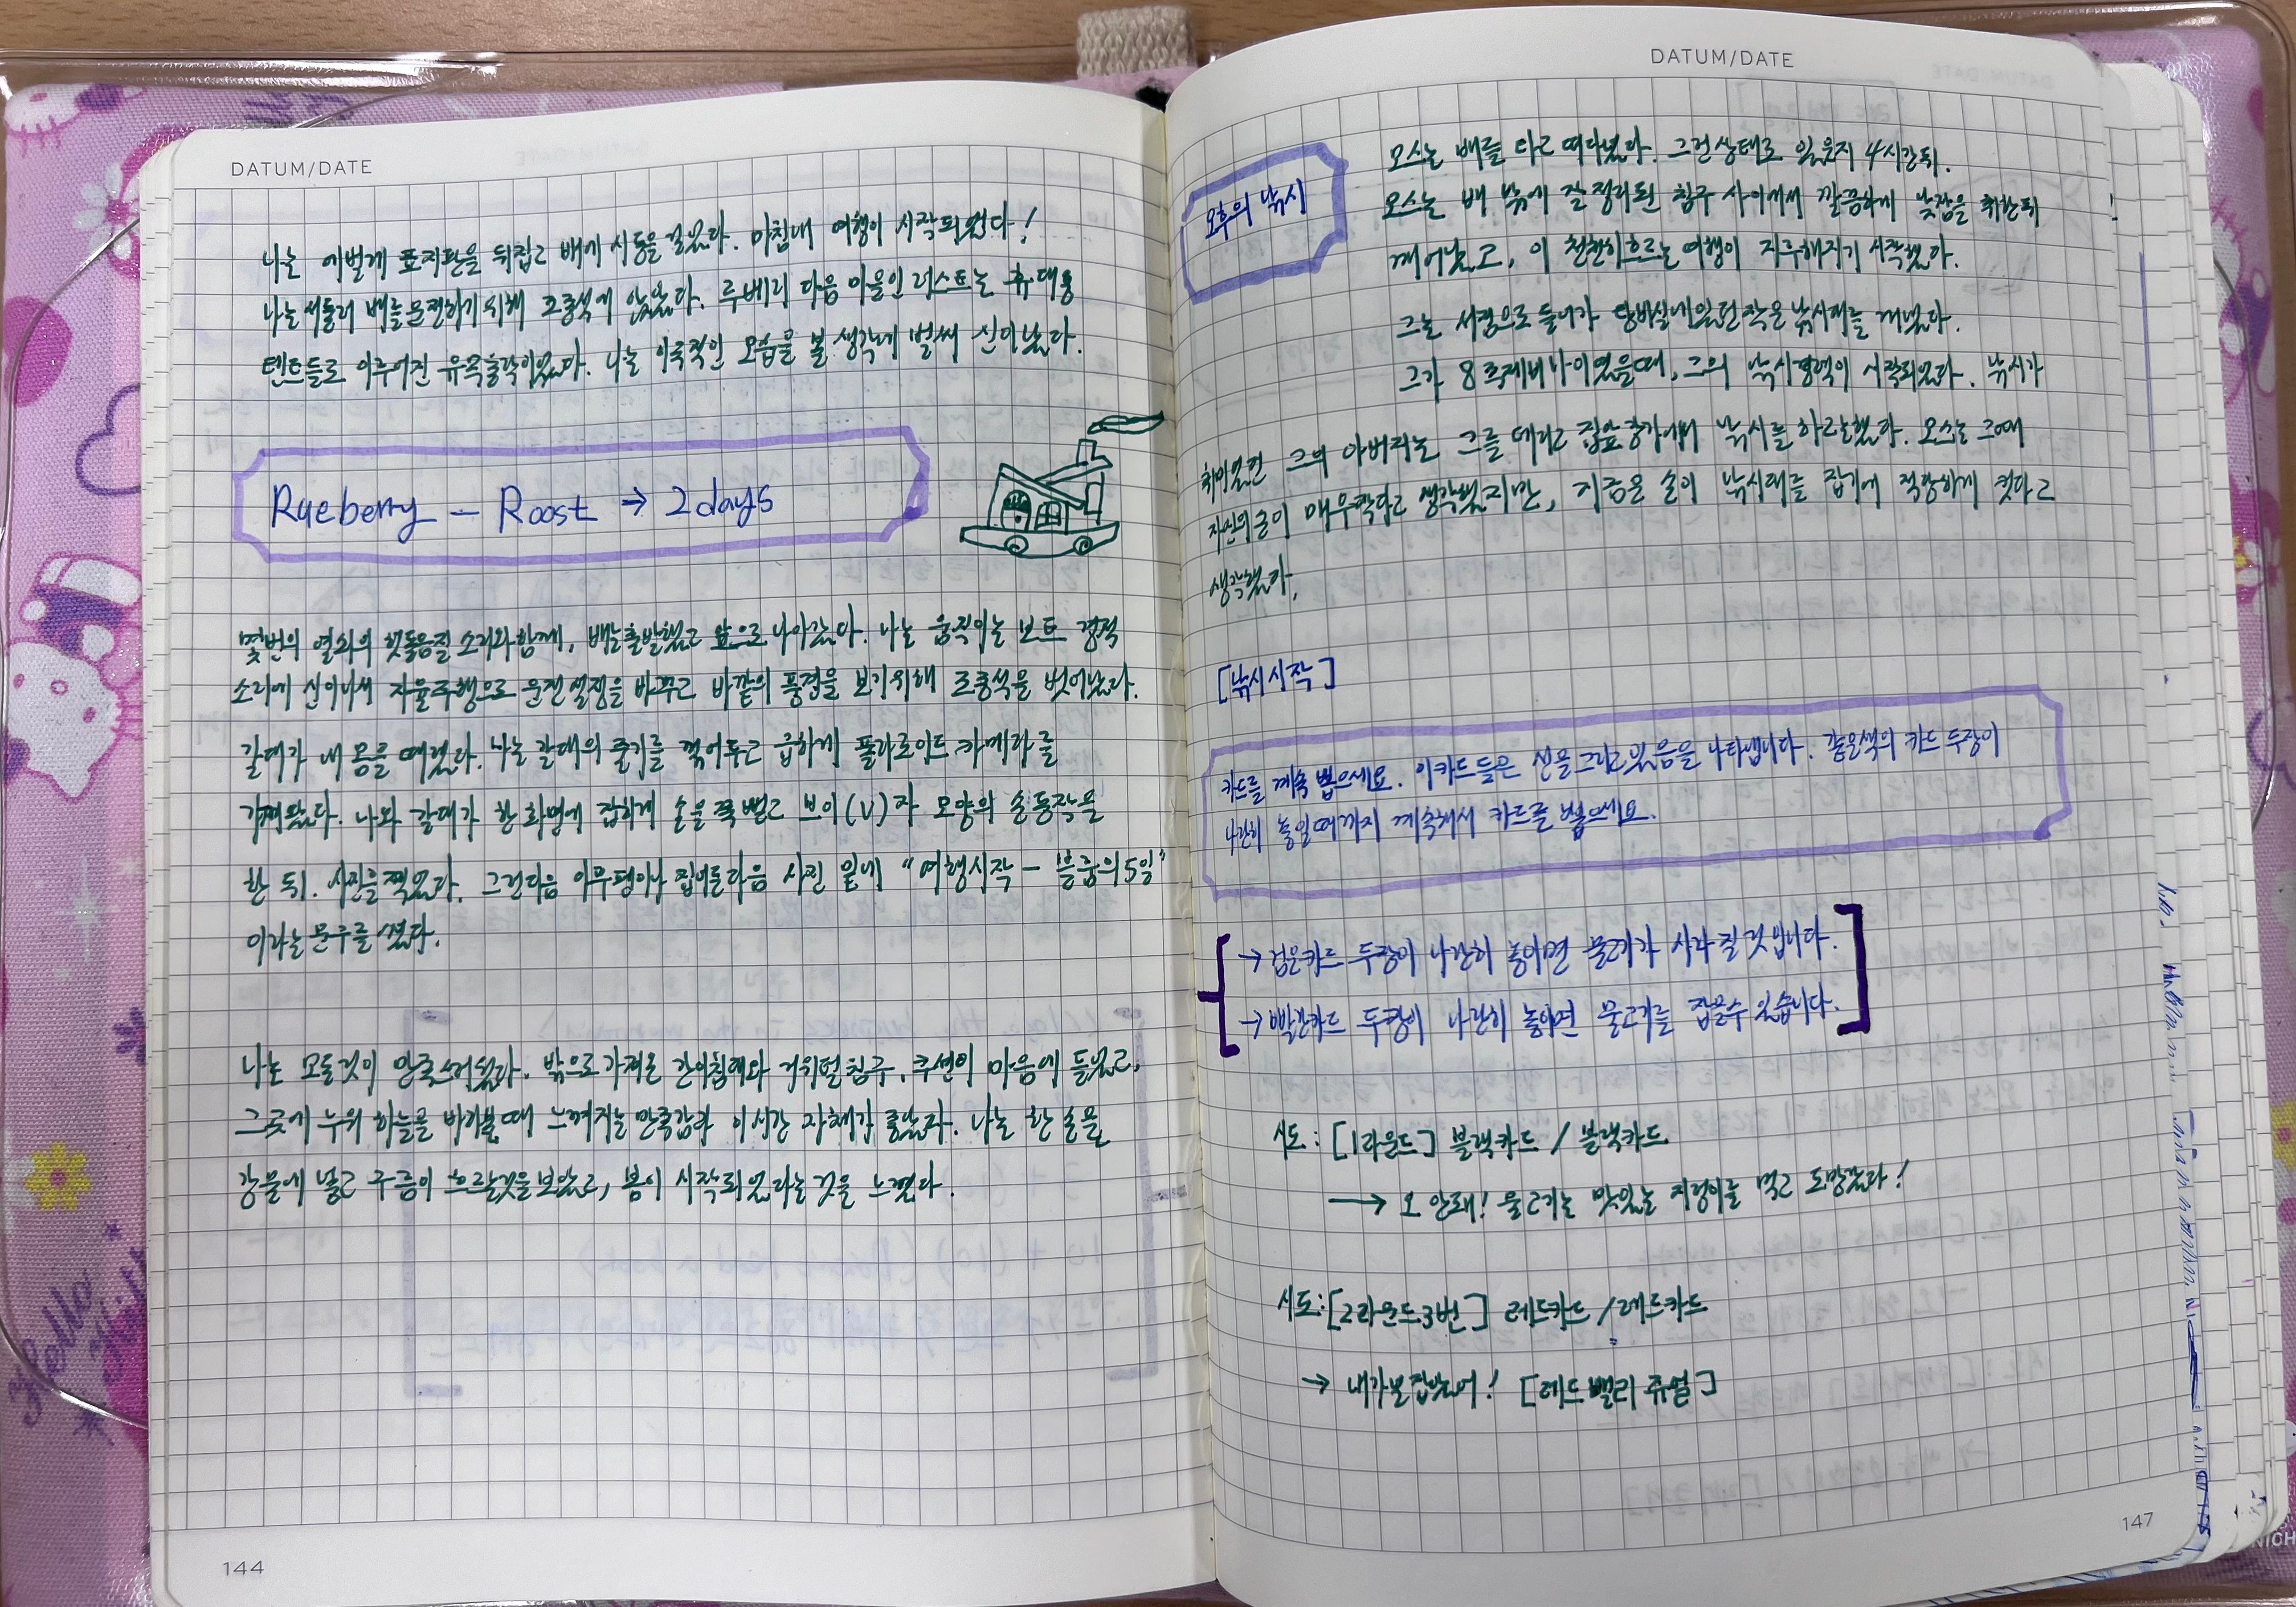 DATUM/DATE
나는 에벌게 표지판을 뒤집고 배에 시동을 걸었다. 마침내 여행이 시작되었다!
나는 서둘러 배를 운전하기 위해 조종석에 앉았다. 루베리 다음 마을인 러스트는 휴대용
텐트들로 이루어진 유목촌락이었다. 나는 이국적인 모습을 볼 생각에 벌써 신이났다.
Rueberry – Roost → 2days
몇번의 열쇠의 헛돌음질 소리와 함께, 배는 출발했고 앞으로 나아갔다. 나는 움직이는 보트 경적
소리에 신이나서 자율주행으로 운전 설정을 바꾸고 바깥의 풍경을 보기위해 조종석을 벗어났다.
갈대가 내 몸을 때렸다. 나는 갈대의 줄기를 꺾어두고 급하게 폴라로이드 카메라를
가져왔다. 나와 갈대가 한 화면에 잡히게 손을 쭉 뻗고 브이(V)자 모양의 손동작을
한 뒤. 사진을 찍었다. 그런다음 아무펜이나 집어든다음 사진 밑에 "여행시작 – 블룸의 5일"
이라는 문구를 썼다.
나는 모든것이 만족스러웠다. 밖으로 가져온 간이침대와 거위털 침구, 쿠션이 마음에 들었고,
그곳에 누워 하늘을 바라볼때 느껴지는 만족감과 이 시간 자체가 좋았다. 나는 한 손을
강물에 넣고 구름이 흐르는것을 보았고, 봄이 시작되었다는 것을 느꼈다.
144
DATUM/DATE
오후의 낚시
오스는 배를 타고 떠다녔다. 그런상태로 있은지 4시간뒤.
오스는 배 밖에 잘 정리된 침구 사이에서 깔끔하게 낮잠을 취한뒤
깨어났고, 이 천천히흐르는 여행이 지루해지기 시작했다.
그는 서랍으로 들어가 담비실내있던 작은 낚시대를 꺼냈다.
그가 8 나이였을때, 그의 낚시경력이 시작되었다. 낚시가
취미였던 그의 아버지는 그를 데리고 집앞 강가에서 낚시를 하곤했다. 오스는 그때
자신의 손이 매우작다고 생각했지만, 지금은 손이 낚시대를 잡기에 적당하게 컸다고
생각했다.
[낚시시작]
카드를 계속 뽑으세요. 이카드들은 선을그리고있음을 나타냅니다. 같은색의 카드 두장이
나란히 놓일때까지 계속해서 카드를 뽑으세요.
→ 검은카드 두장이 나란히 놓이면 물고기가 사라질 것입니다.
→ 빨간카드 두장이 나란히 놓이면 물고기를 잡을수 있습니다.
시도: [1라운드] 블랙카드 / 블랙카드
→ 오 안돼! 물고기는 맛있는 지렁이를 먹고 도망갔다!
시도: [2라운드3번] 레드카드 / 레드카드
→ 내가널잡았어! [레드 밸리 쥬얼]
147